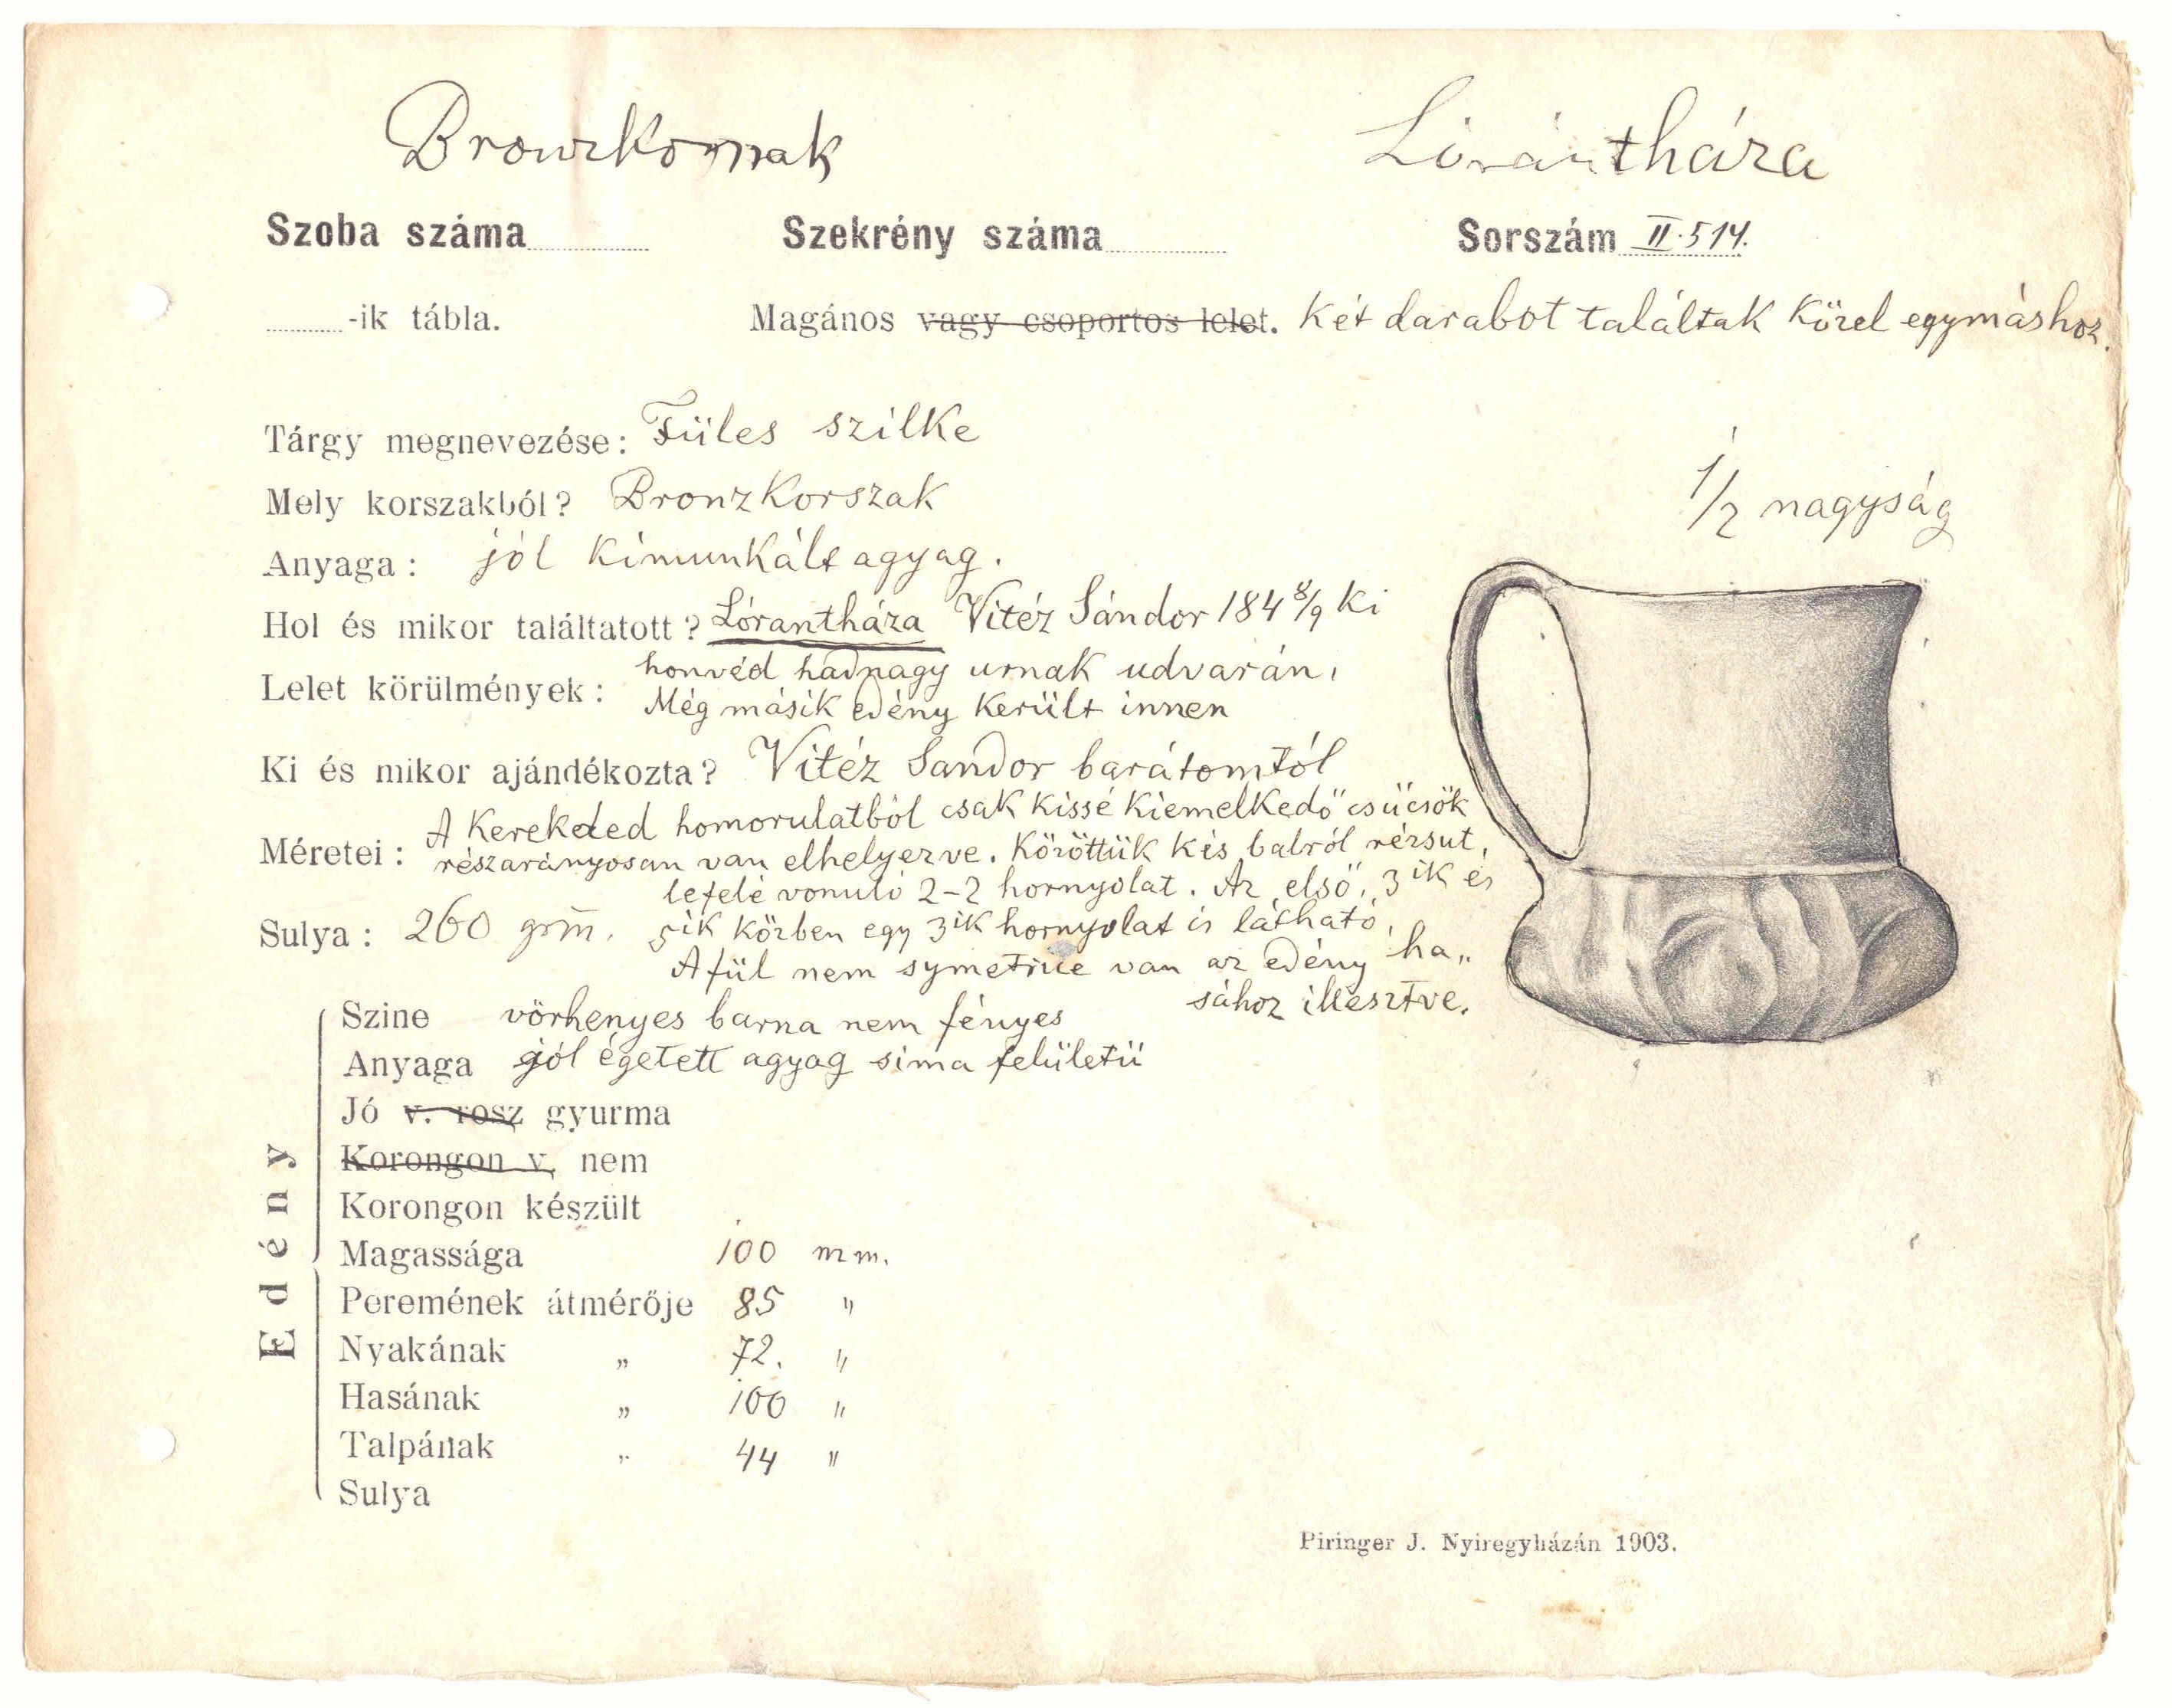 Bronzkorszak Lórántháza
Szoba száma Szekrény száma Sorszám II.514.
-ik tábla. Magános vagy csoportos lelet. Két darabot találtak közel egymáshoz.
Tárgy megnevezése: Füles szilke
1/2 nagyság
Mely korszakból? Bronzkorszak
Anyaga: jól kimunkált agyag.
Hol és mikor találtatott? Lórantháza Vitéz Sándor 1848/9 ki
honvéd hadnagy urnak udvarán,
Lelet körülmények: Még másik edény került innen
Ki és mikor ajándékozta? Vitéz Sandor barátomtól
A kerekded homorulatból csak kissé kiemelkedő csücsök
Méretei: részarányosan van elhelyezve. Köröttük kis balról rézsut,
lefelé vonuló 2-2 hornyolat. Az első, 3ik és
Sulya: 260 grm. 5ik közben egy 3ik hornyolat is látható.
A fül nem symetrice van az edény ha„
sához illesztve.
Edény
Szine vörhenyes barna nem fényes
Anyaga jól égetett agyag sima felületü
Jó v. rosz gyurma
Korongon v. nem
Korongon készült
Magassága 100 mm.
Peremének átmérője 85 "
Nyakának „ 72. "
Hasának „ 100 "
Talpának „ 44 "
Sulya
Piringer J. Nyiregyházán 1903.